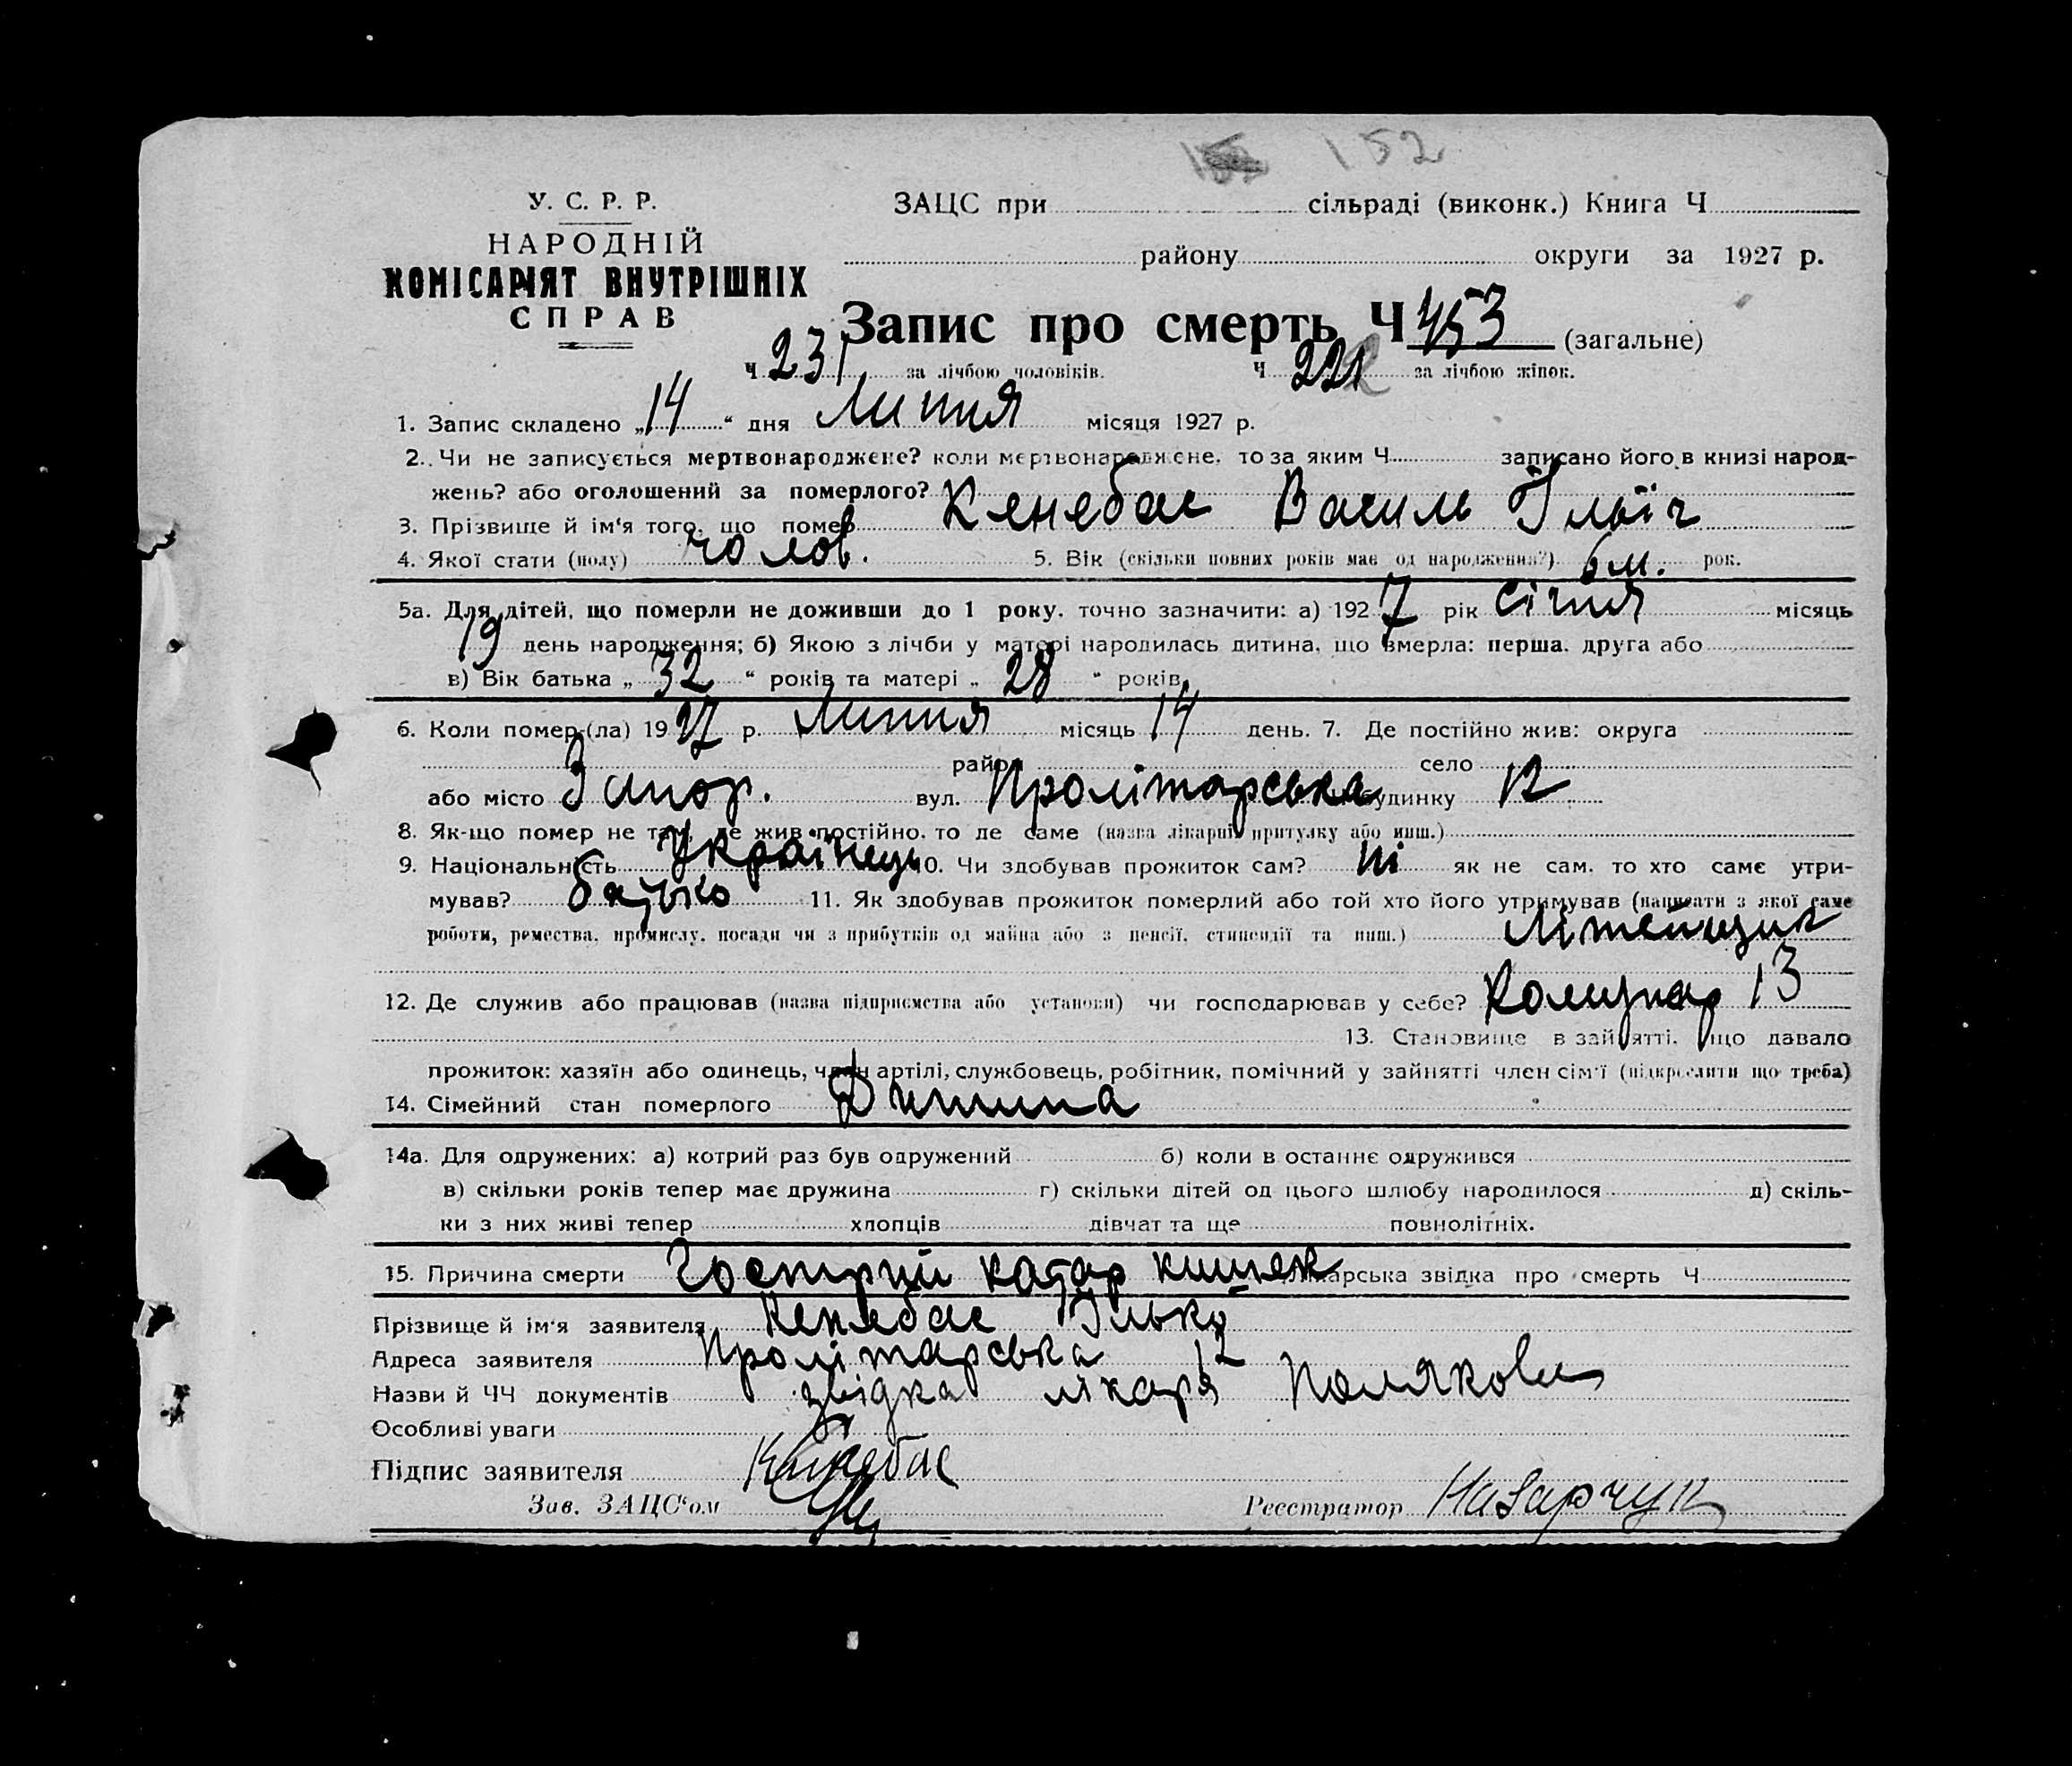 152
У. С. Р. Р.
НАРОДНІЙ
КОМІСАРІЯТ ВНУТРІШНІХ
СПРАВ
ЗАЦС при сільраді (виконк.) Книга Ч
району округи за 1927 р.
Запис про смерть Ч 453 (загальне)
Ч 231 за лічбою чоловіків. Ч 222 за лічбою жінок.
1. Запис складено „14“ дня липня місяця 1927 р.
2. Чи не записується мертвонароджене? коли мертвонароджене, то за яким Ч записано його в книзі народ-
жень? або оголошений за померлого?
3. Прізвище й ім'я того, що помер Кенебас Василь Ільїч
4. Якої стати (полу) чолов. 5. Вік (скільки повних років має од народження?) 6 м. рок.
5а. Для дітей, що померли не доживши до 1 року, точно зазначити: а) 1927 рік січня місяць
19 день народження; б) Якою з лічби у матері народилась дитина, що вмерла: перша, друга або
в) Вік батька „32“ років та матері „28“ років.
6. Коли помер (ла) 1927 р. липня місяць 14 день. 7. Де постійно жив: округа
район село
або місто Запор. вул. Пролітарська будинку 12
8. Як-що помер не там, де жив постійно, то де саме (назва лікарні, притулку або инш.)
9. Національність Українець 10. Чи здобував прожиток сам? ні як не сам, то хто саме утри-
мував? батько 11. Як здобував прожиток померлий або той хто його утримував (написати з якої саме
роботи, ремества, промислу, посади чи з прибутків од майна або з пенсії, стипендії та инш.) Літейщик
12. Де служив або працював (назва підприємства або установи) чи господарював у себе? Комунар 13
13. Становище в зайнятті, що давало
прожиток: хазяїн або одинець, член артілі, службовець, робітник, помічний у зайнятті член сім'ї (підкреслити що треба)
14. Сімейний стан померлого Дитина
14а. Для одружених: а) котрий раз був одружений б) коли в останнє одружився
в) скільки років тепер має дружина г) скільки дітей од цього шлюбу народилося д) скіль-
ки з них живі тепер хлопців дівчат та ще повнолітніх.
15. Причина смерти Гострий катар кишек Лікарська звідка про смерть Ч
Прізвище й ім'я заявителя Кенебас Ілько
Адреса заявителя Пролітарська 12
Назви й ЧЧ документів звідка лікаря Полякова
Особливі уваги
Підпис заявителя Кенебас
Зав. ЗАЦС'ом Реєстратор Назарчук